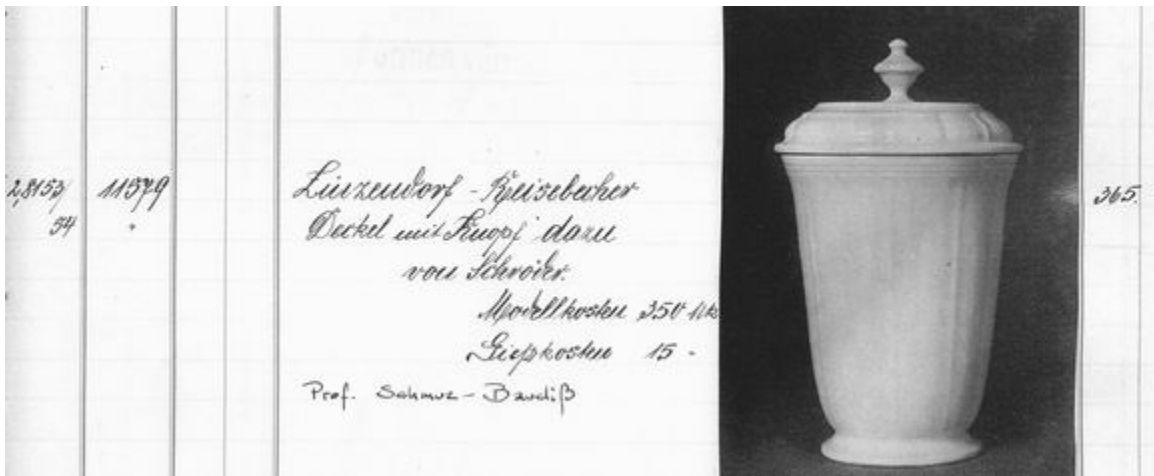 2,8153/ 11579 Linzendorf - Reisebecher 365.
54 " Deckel mit Knopf dazu
von Schröder.
Modellkosten 350 Mk
Gießkosten 15 -
Prof. Schmuz - Baudiß